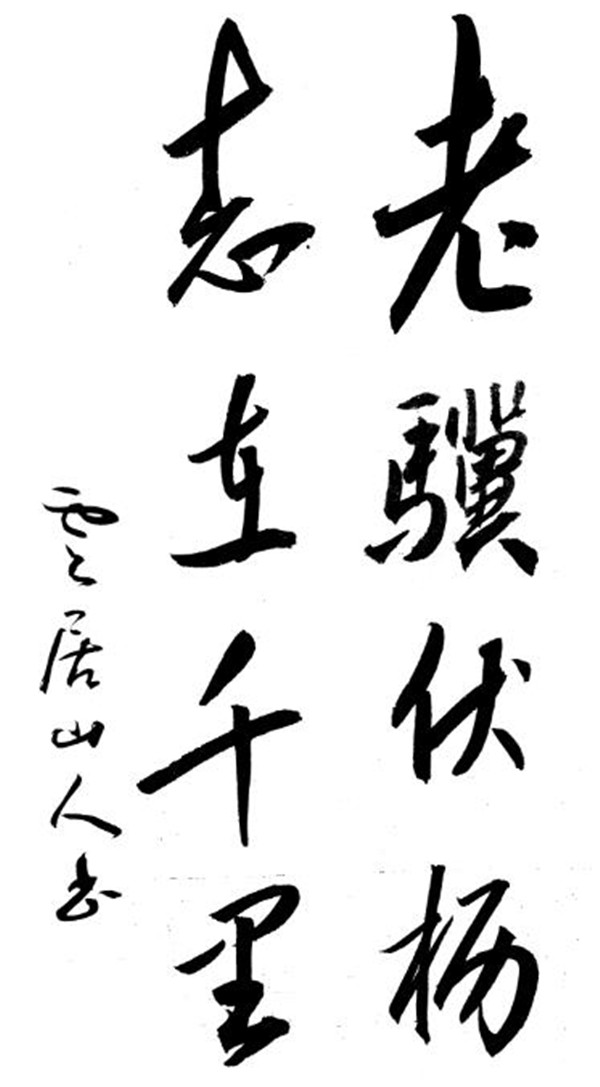 老驥伏枥
志在千里
雲居山人书